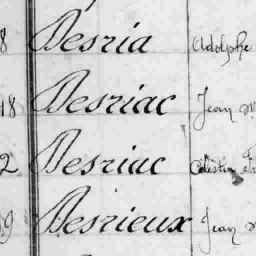 8 Desria Adolphe
18 Desriac Jean M
2 Desriac Célestin
9 Desrieux Jean